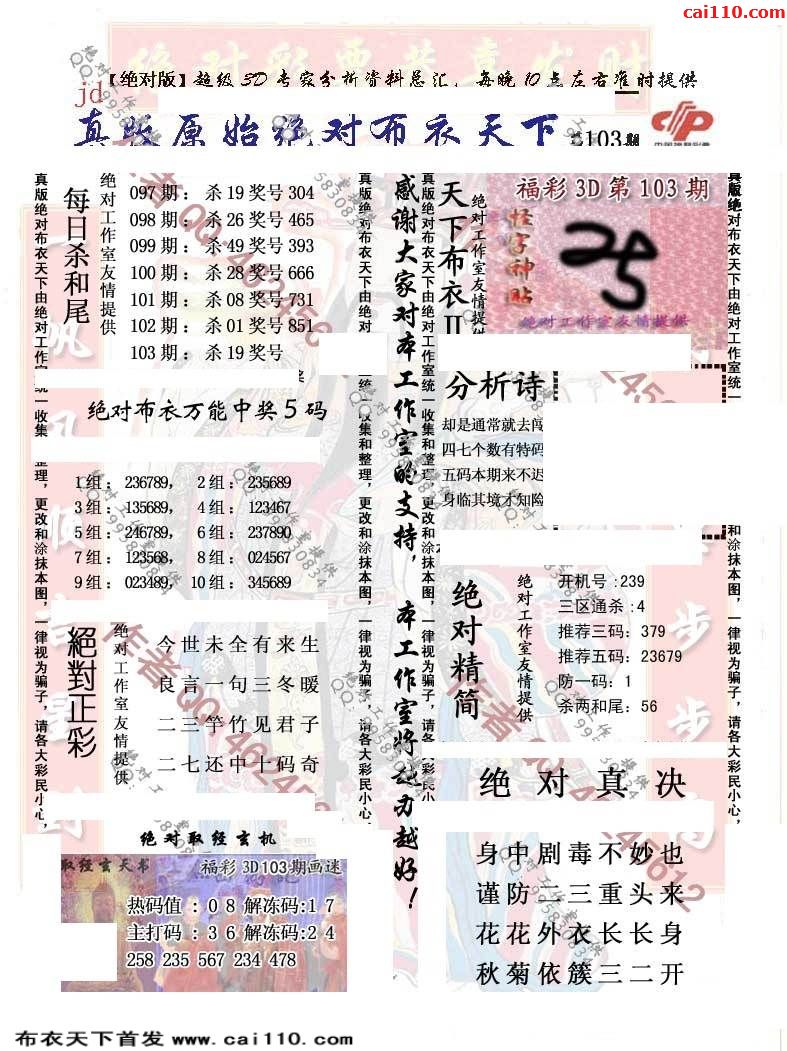 cai110.com
【绝对版】超级3D专家分析资料总汇，每晚10点左右准时提供
jd
真版原始绝对布衣天下
103期
每日杀和尾
绝对工作室友情提供
097期：杀19奖号304
098期：杀26奖号465
099期：杀49奖号393
100期：杀28奖号666
101期：杀08奖号731
102期：杀01奖号851
103期：杀19奖号
绝对布衣万能中奖5码
1组：236789， 2组：235689
3组：135689， 4组：123467
5组：246789， 6组：237890
7组：123568， 8组：024567
9组：023489， 10组：345689
絕對正彩
绝对工作室友情提供
今世未全有来生
良言一句三冬暖
二三竿竹见君子
二七还中十码奇
绝对取经玄机
取经玄天书
福彩3D103期画迷
热码值：08解冻码:17
主打码：36解冻码:24
258 235 567 234 478
感谢大家对本工作室的支持，本工作室将越办越好！
天下布衣II
绝对工作室友情提供
福彩3D第103期
怪字神贴
25
绝对工作室友情提供
分析诗
却是通常就去闯
四七个数有特码
五码本期来不迟
身临其境才知险
绝对精简
绝对工作室友情提供
开机号:239
三区通杀:4
推荐三码:379
推荐五码:23679
防一码:1
杀两和尾:56
绝对真决
身中剧毒不妙也
谨防一三重头来
花花外衣长长身
秋菊依簇三二开
真版绝对布衣天下由绝对工作室统一收集和整理，更改和涂抹本图，一律视为骗子，请各大彩民小心，
布衣天下首发 www.cai110.com